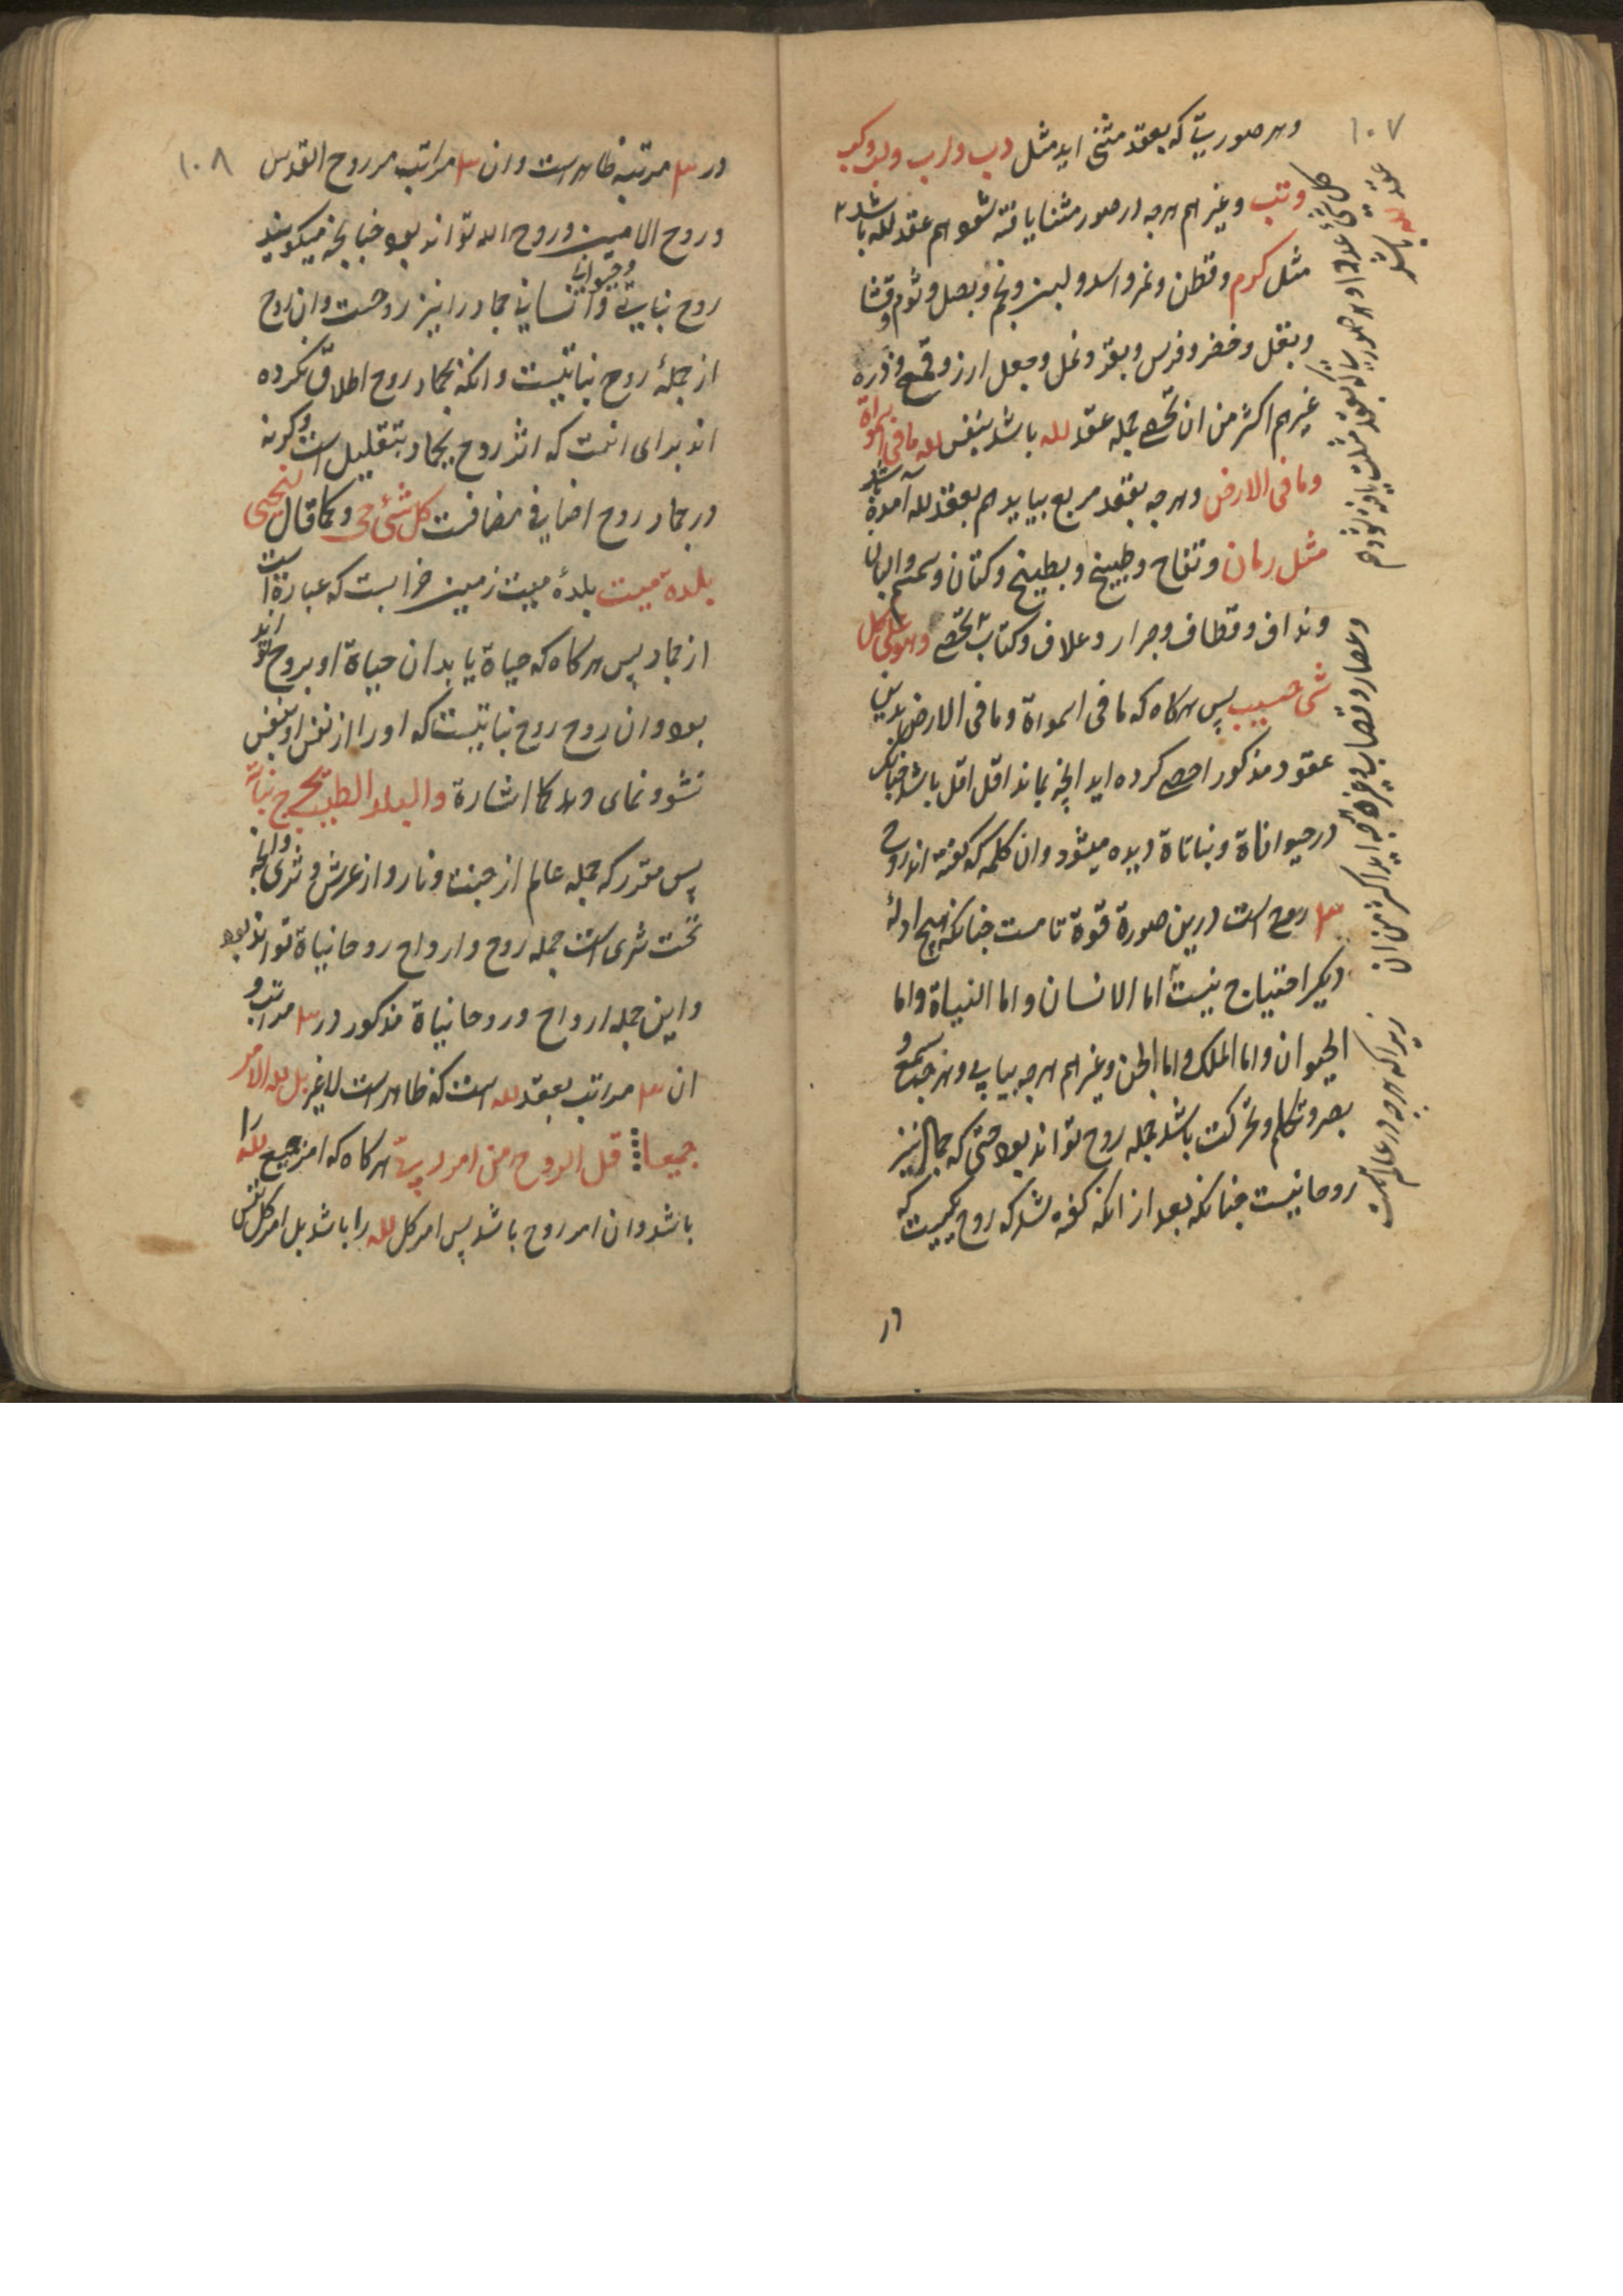 ۱۰۷
وهر صورتی که بعقد مثنی اید مثل دب و اب و
وتب وغیرهم هرچه در صور مثنا یافته شود هم عقد لله باشد
مثل کرم وقطن ونمر واسد ولبن ونجم وبصل وثوم وقثا
وبقل وخضر وفرس وبقر ونمل وجعل ارز وقمح وذره
غیرهم اکثر من ان تحصی جمله عقد لله باشد بنفس لله ما فی السمواة
وما فی الارض وهرچه بعقد مربع بیاید هم بعقد لله آمده باشد
مثل رمان وتفاح وطبیخ وبطیخ وکتان وسمسم والبان
ونداف وقطاف وجرار وعلاف وکتاب تحصی وهو علی کل
شئ حسیب پس هرکاه که ما فی السمواة وما فی الارض بدین
عقود مذکور احصی کرده اید انچه بماند اقل اقل باشد چنانکه
در حیواناة ونباتاة دیده میشود وان کلمه که کفته اند روح
۳ روح است درین صورة قوة تامست چنانکه هیچ ادلهٔ
دیکر احتیاج نیست اما الانسان واما النباة واما
الحیوان واما الملک واما الجن وغیرهم هرچه بیابی وهرچه سمع و
بصر وتکلم وتحرکت باشد جمله روح تواند بود حتی که جمال نیز
روحانیست چنانکه بعد از انکه کفته شد که روح یکیست که
عقد لله باشد
کل شئ وهر صورتی که بعقد مثلث یافته شود هم
وعصار وقصاب وغیره چه اید اکثر من ان
زیرا که هرچه در عالمست
۱۰۸
در ۳ مرتبه ظاهر است وان ۳ مراتب مر روح القدس
وروح الامین وروح الله تواند بود چنانچه میکویند
روح نباتی وحیوانی وانسانی جماد را نیز روحست وان روح
از جملهٔ روح نباتیست وانکه بجماد روح اطلاق نکرده
اند برای انست که اثر روح بجماد بتقلیل است وکرنه
در جماد روح اضافی مضافست کل شئ حی وکما قال لنحیی
بلدة میت بلدهٔ میت زمین خرابست که عبارة است
از جماد پس هرکاه که حیاة یابد ان حیاة او بروح تواند
بود وان روح روح نباتیست که او را از نفس او بنفس
نشو ونمای وهد کما اشارة والبلد الطیب یخرج نباته
پس مقرر که جمله عالم از جنت ونار واز عرش وثری وانچه
تحت ثری است جمله روح وارواح روحانیاة تواند بود
واین جمله ارواح وروحانیاة مذکور در ۳ مراتب و
ان ۳ مراتب بعقد لله است که ظاهر است لاغیر بل لله الامر
جمیعا قل الروح من امر ربی هرکاه که امر جمیع لله را
باشد وان امر روح باشد پس امر کل لله را باشد بل امر کل نفس